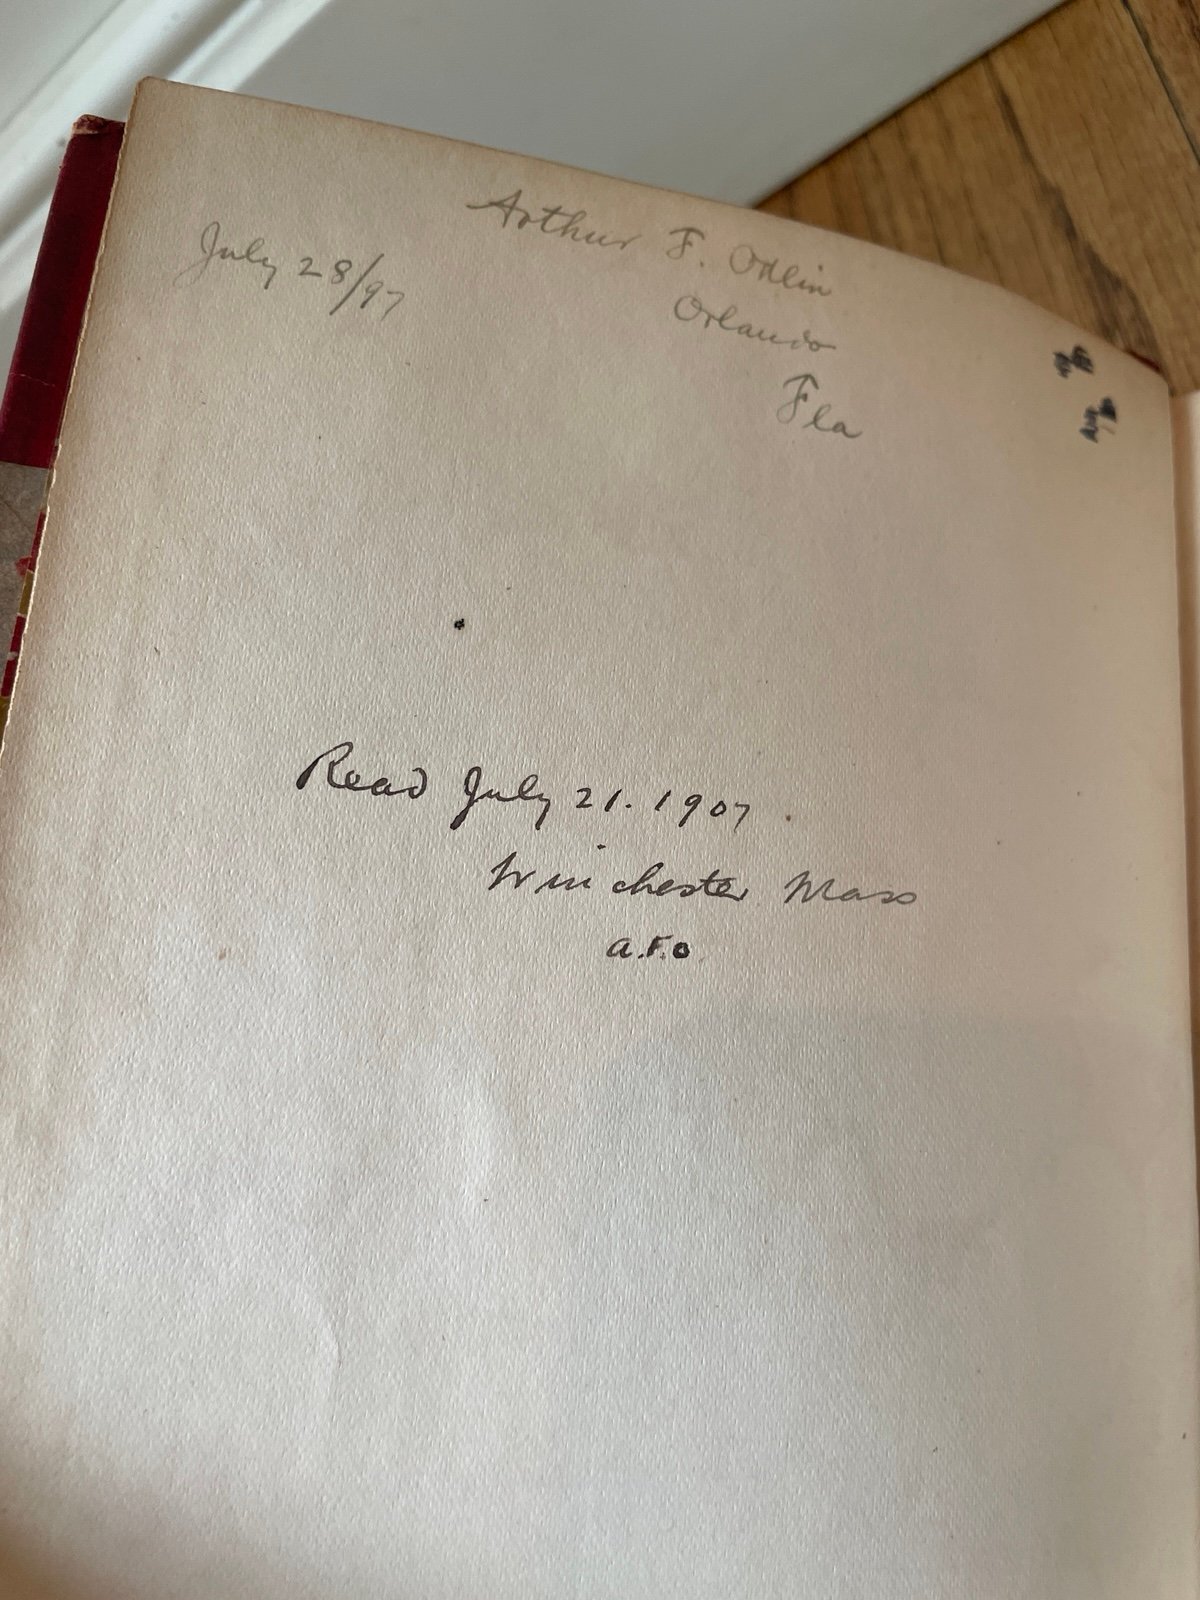 Arthur F. Odlin
July 28/97
Orlando
Fla
Read July 21. 1907.
Winchester Mass
a.F.O